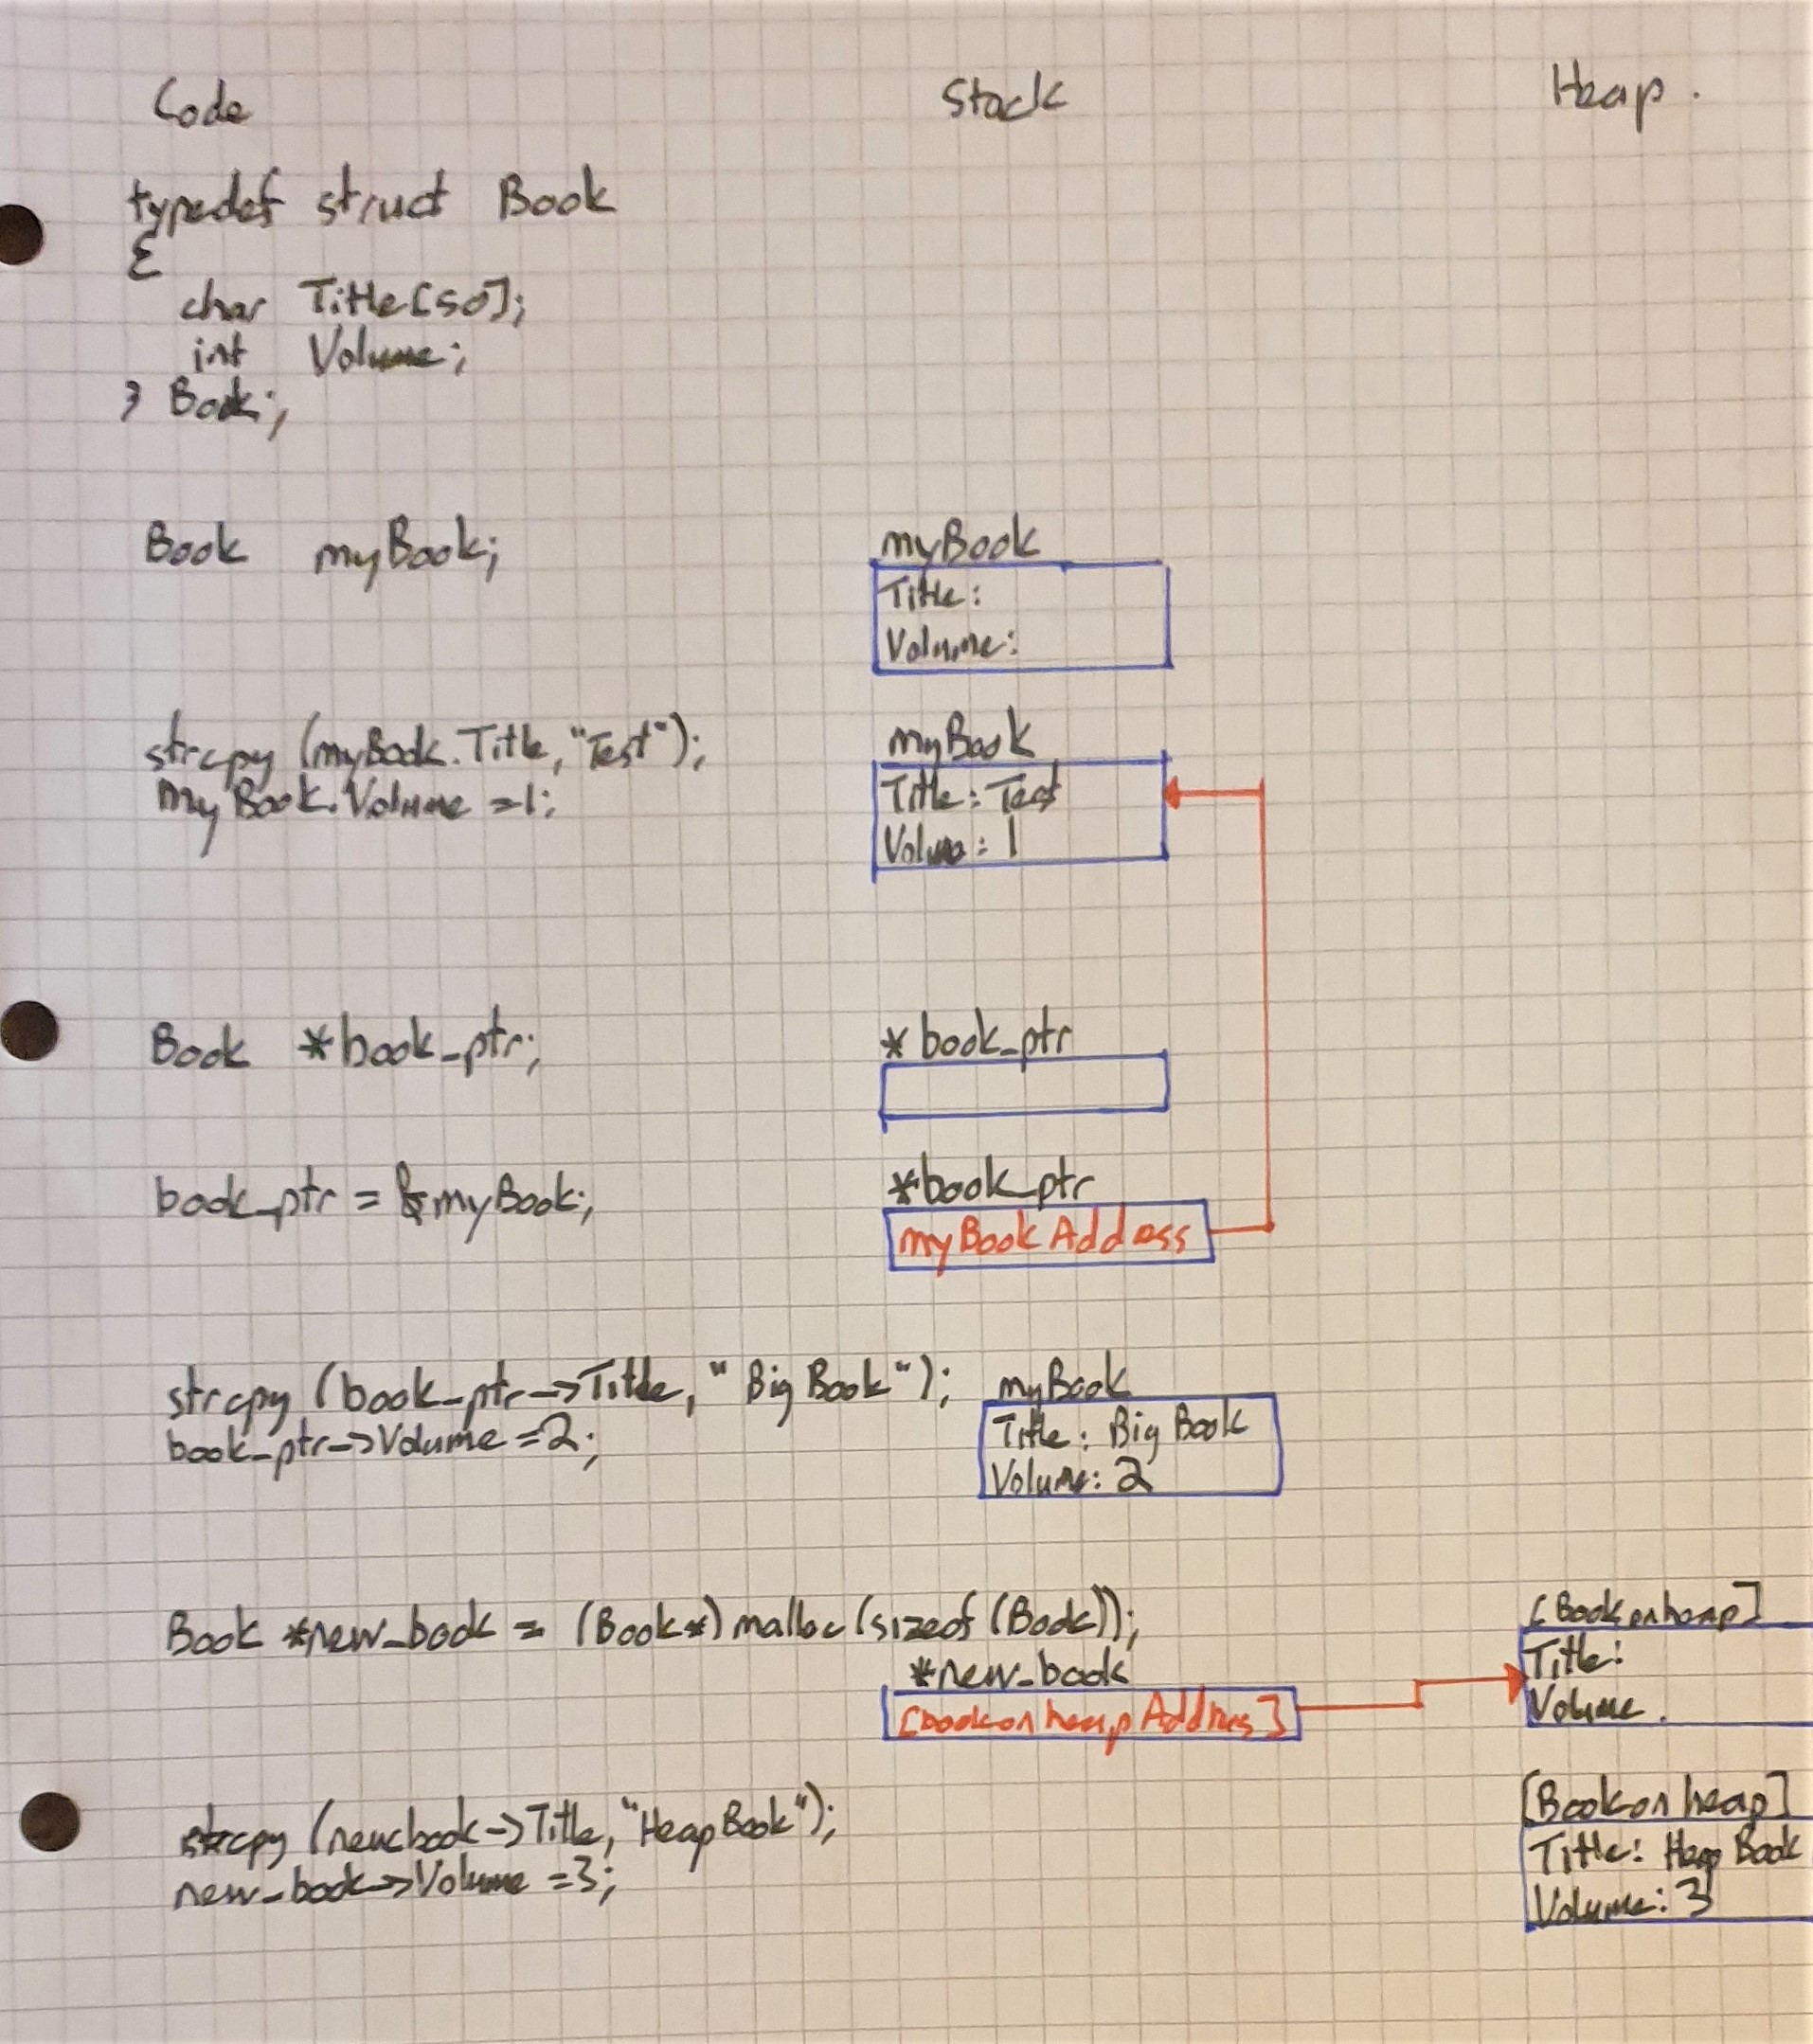 Code Stack Heap.
typedef struct Book
{
char Title[50];
int Volume;
} Book;
Book myBook;
myBook
Title:
Volume:
strcpy (myBook.Title, "Test");
myBook.Volume =1;
myBook
Title: Test
Volume: 1
Book *book_ptr;
*book_ptr
book_ptr = &myBook;
*book_ptr
myBook Address
strcpy (book_ptr->Title, "Big Book");
book_ptr->Volume =2;
myBook
Title: Big Book
Volume: 2
Book *new_book = (Book*) malloc (sizeof (Book));
*new_book
[book on heap Address]
[Book on heap]
Title:
Volume.
strcpy (new_book->Title, "Heap Book");
new_book->Volume =3;
[Book on heap]
Title: Heap Book
Volume: 3